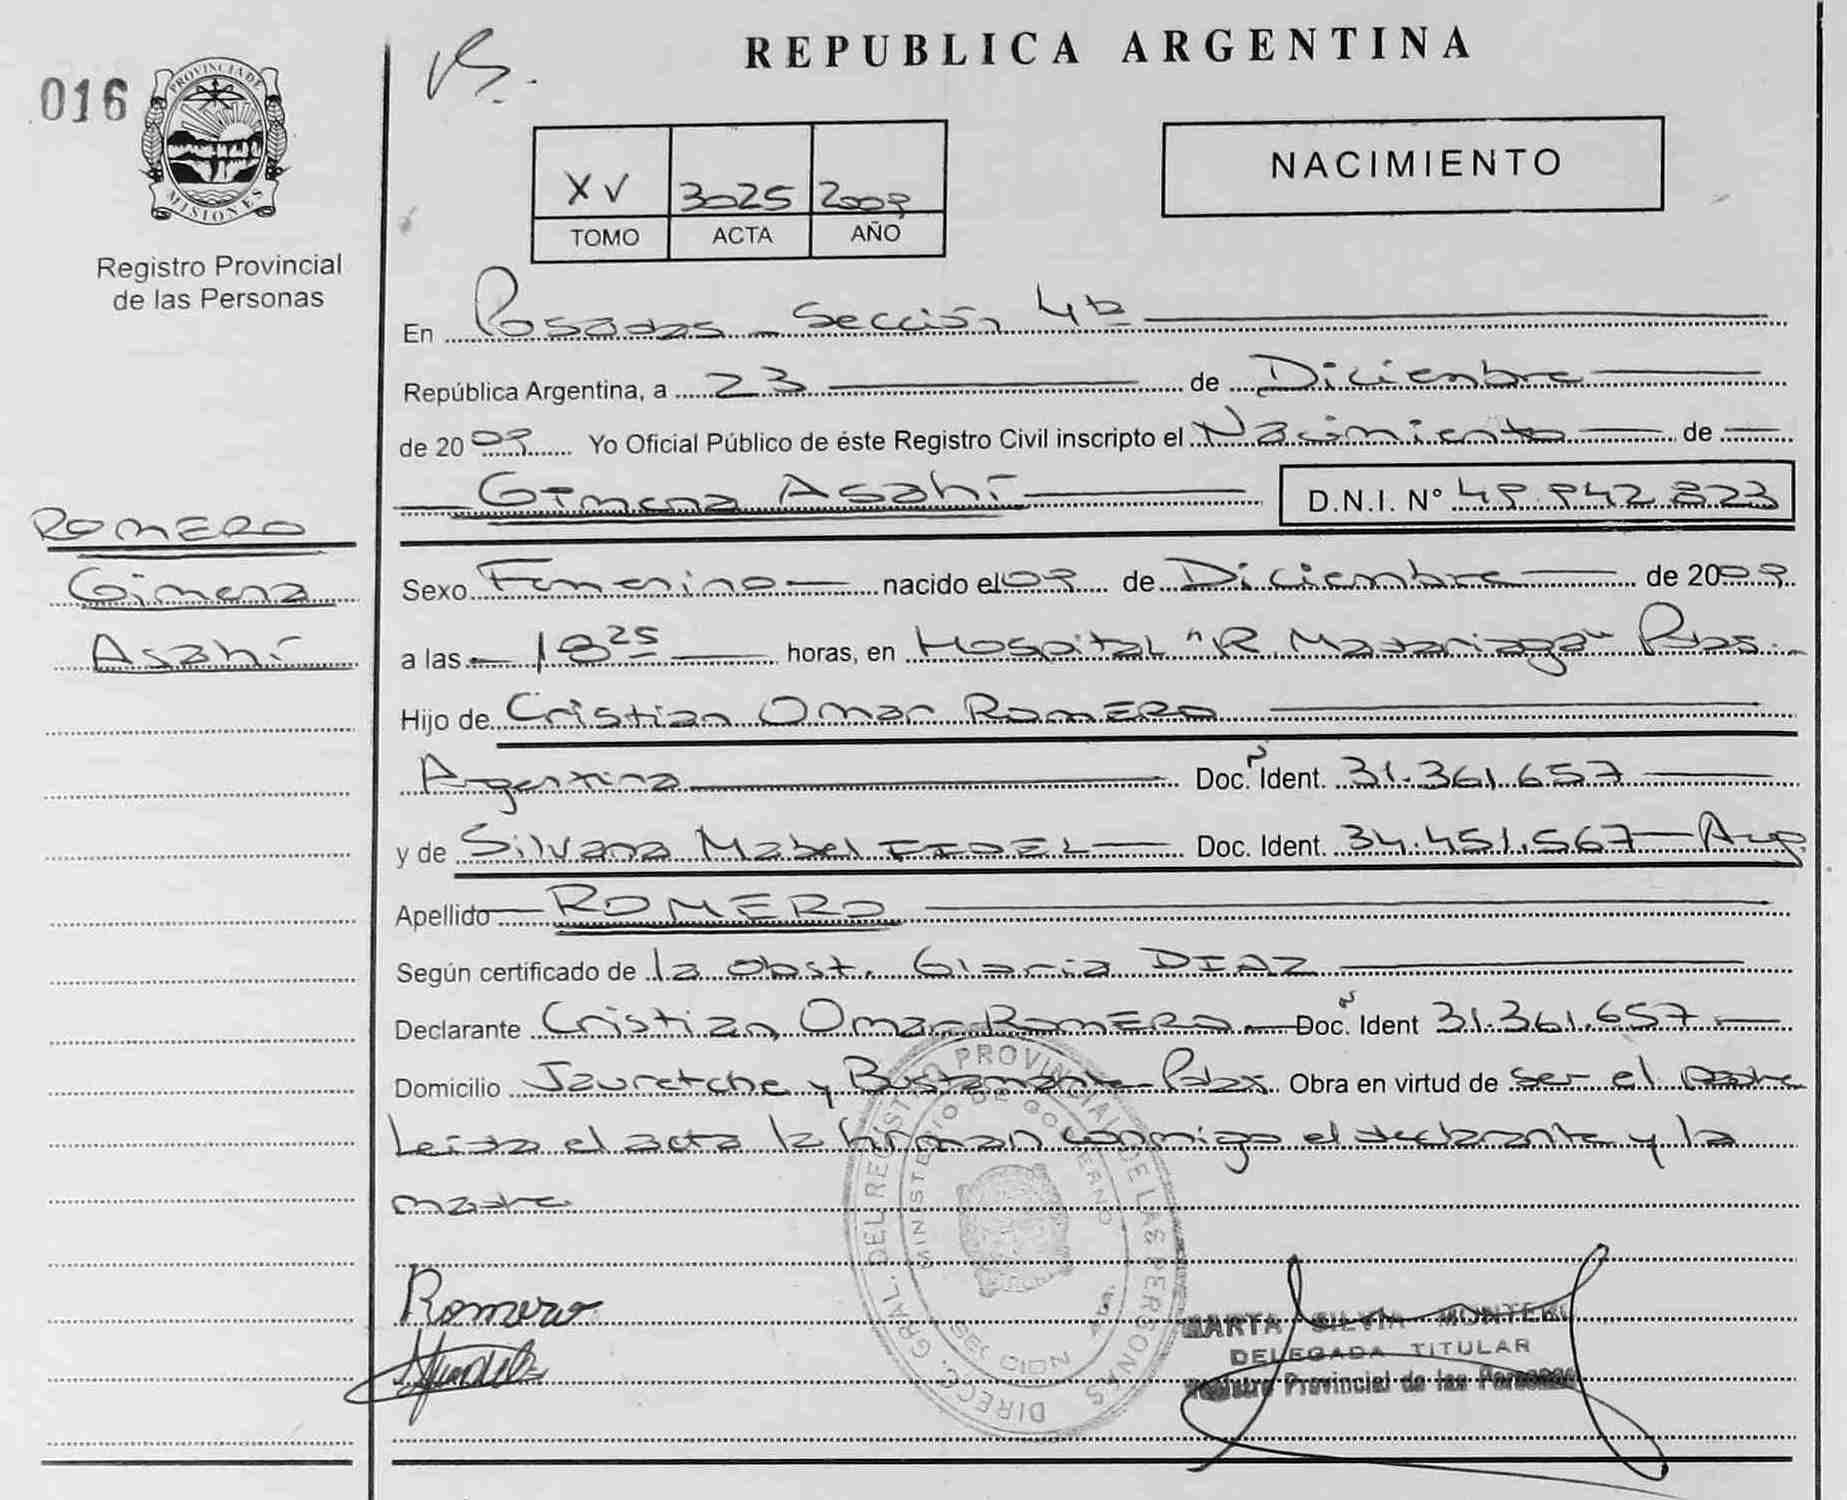 REPUBLICA ARGENTINA
016
PROVINCIA DE
MISIONES
Registro Provincial
de las Personas
NACIMIENTO
XV 3025 2009
TOMO ACTA AÑO
En Posadas - Sección 4ta
República Argentina, a 23 de Diciembre
de 2009 Yo Oficial Público de éste Registro Civil inscripto el Nacimiento de
Gimena Asahí D.N.I. N° 49.942.823
ROMERO
Gimena
Asahí
Sexo Femenino nacido el 09 de Diciembre de 2009
a las 18 25 horas, en Hospital "R. Madariaga" Pdas.
Hijo de Cristian Omar ROMERO
Argentina Doc. Ident. 31.361.657
y de Silvana Mabel FIDEL Doc. Ident. 34.451.567 Arg.
Apellido ROMERO
Según certificado de la obst. Gloria DIAZ
Declarante Cristian Omar ROMERO Doc. Ident 31.361.657
Domicilio Jauretche y Bustamante Pdas. Obra en virtud de ser el padre
Leída el acta la firman conmigo el declarante y la
madre
DIRECC. GRAL. DEL REGISTRO PROVINCIAL DE LAS PERSONAS
MINISTERIO DE GOBIERNO
Romero
MARTA SILVIA
DELEGADA TITULAR
Registro Provincial de las Personas